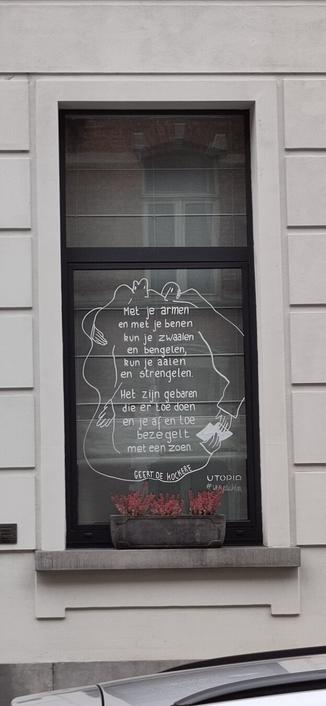 Met je armen
en met je benen
kun je zwaaien
en bengelen,
kun je aaien
en strengelen.
Het zijn gebaren
die er toe doen
en je af en toe
bezegelt
met een zoen.
GEERT DE KOCKERE
UTOPIA